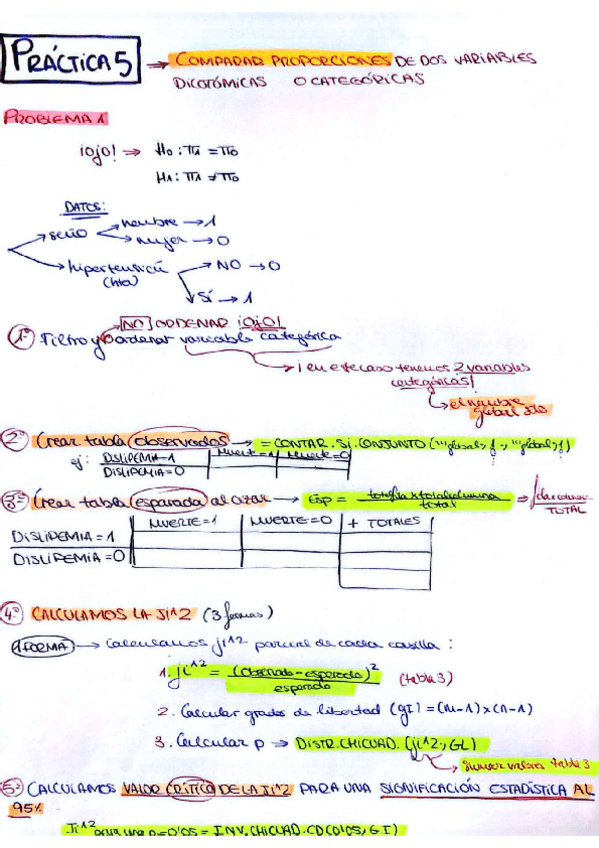 PRÁCTICA 5 → COMPARAR PROPORCIONES DE DOS VARIABLES
DICOTÓMICAS O CATEGÓRICAS
PROBLEMA 1
¡ojo! ⇒ H0 : π1 = π0
H1 : π1 ≠ π0
DATOS:
sexo → hombre → 1
→ mujer → 0
→ hipertensión (hta) → NO → 0
→ Sí → 1
NO ORDENAR ¡OJO!
1º Filtro y ordenar variable categórica
→ ¡en este caso tenemos 2 variables
categóricas!
→ el nombre
global
2º Crear tabla observados → = CONTAR.SI.CONJUNTO ("global"; 1; "global"; 1)
ej: DISLIPEMIA=1 MUERTE=1 MUERTE=0
DISLIPEMIA=0
3º Crear tabla esperada al azar → Esp = total fila x total columna / total ⇒
TOTAL
MUERTE=1 MUERTE=0 + TOTALES
DISLIPEMIA=1
DISLIPEMIA=0
4º CALCULAMOS LA JI^2 (3 formas)
1 FORMA → Calculamos ji^2 parcial de cada casilla:
1. ji^2 = (observado-esperado)^2 / esperado (tabla 3)
2. Calcular grados de libertad (gl) = (m-1)x(n-1)
3. Calcular p → DISTR.CHICUAD. (ji^2; GL)
→ sumar valores tabla 3
5º CALCULAMOS VALOR CRÍTICO DE LA JI^2 PARA UNA SIGNIFICACIÓN ESTADÍSTICA AL
95%
Ji^2 para una p=0'05 = INV.CHICUAD.CD(0'05; GI)